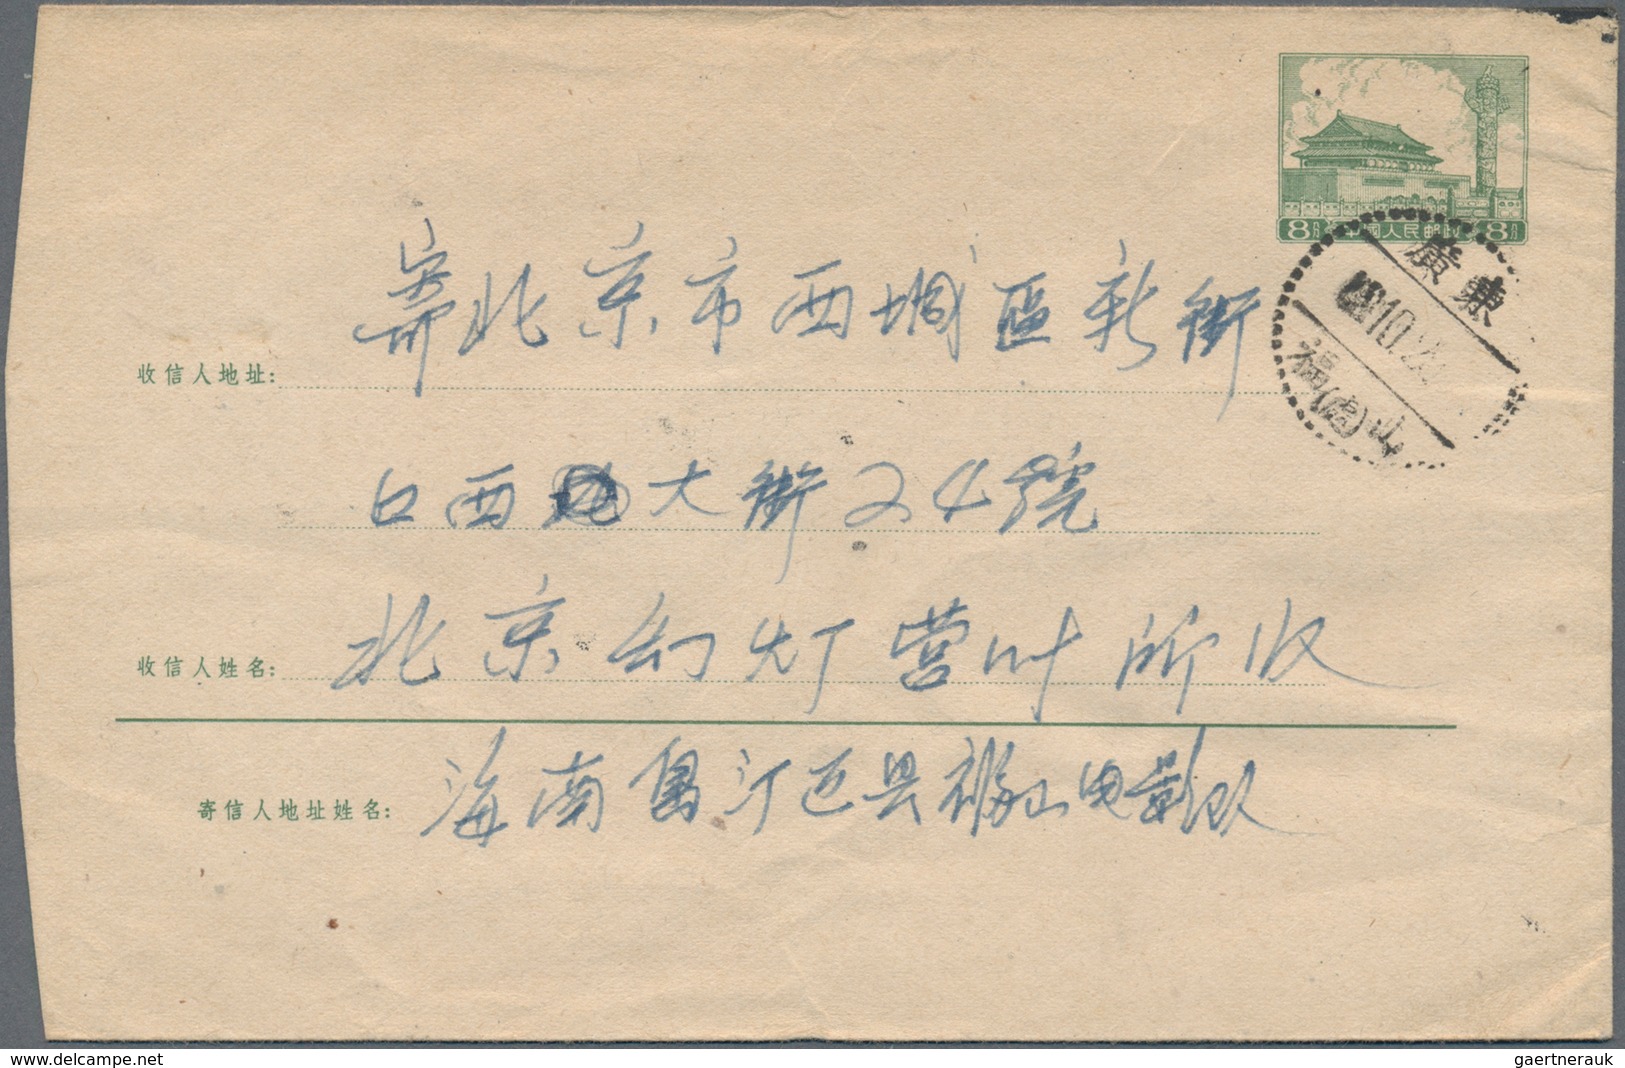 8分 中國人民邮政 8分
廣東
10.2
福山
寄北京市西城區新街
收信人地址:
口西 大街24號
收信人姓名: 北京幻灯营叶所收
寄信人地址姓名: 海南島汀迈县福山电影队
delcampe.net
gaertnerauk